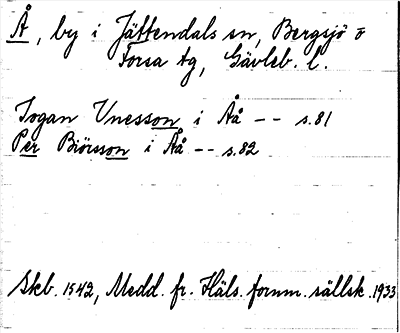 Å, by i Jättendals sn, Bergsjö o
Forsa tg, Gävleb. l.
Jogan Unesson i Åå -- s.81
Per Biörsson i Åå -- s.82
Skb. 1542, Medd. fr. Häls. fornm. sällsk. 1933